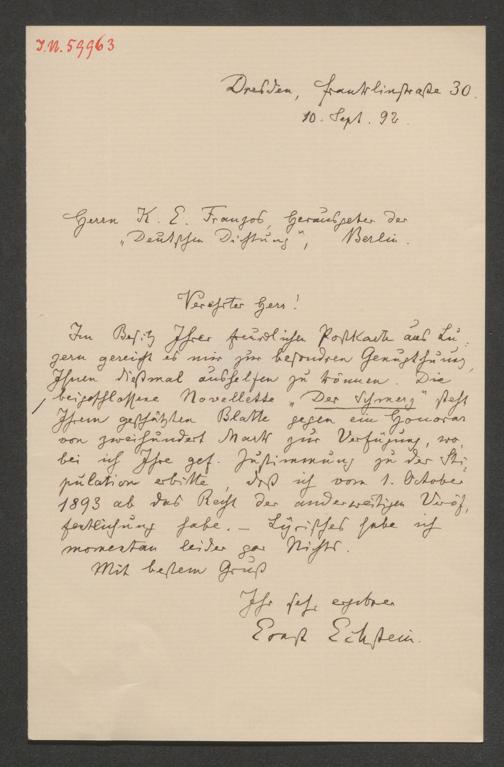 J.N. 59963
Dresden, Franklinstraße 30.
10. Sept. 92.
Herrn K. E. Franzos, Herausgeber der
„Deutschen Dichtung", Berlin.
Verehrter Herr!
Im Besitz Ihrer freundlichen Postkarte aus Lu-
zern gereicht es mir zur besondren Genugthuung,
Ihnen dießmal aushelfen zu können. Die
beigeschlossene Novellette „Der Schmerz" steht
Ihrem geschätzten Blatte gegen ein Honorar
von zweihundert Mark zur Verfügung, wo-
bei ich Ihre gef. Zustimmung zu der Sti-
pulation erbitte, daß ich vom 1. October
1893 ab das Recht der anderweitigen Veröf-
fentlichung habe. – Lyrisches habe ich
momentan leider gar Nichts.
Mit bestem Gruß
Ihr sehr ergebner
Ernst Eckstein.